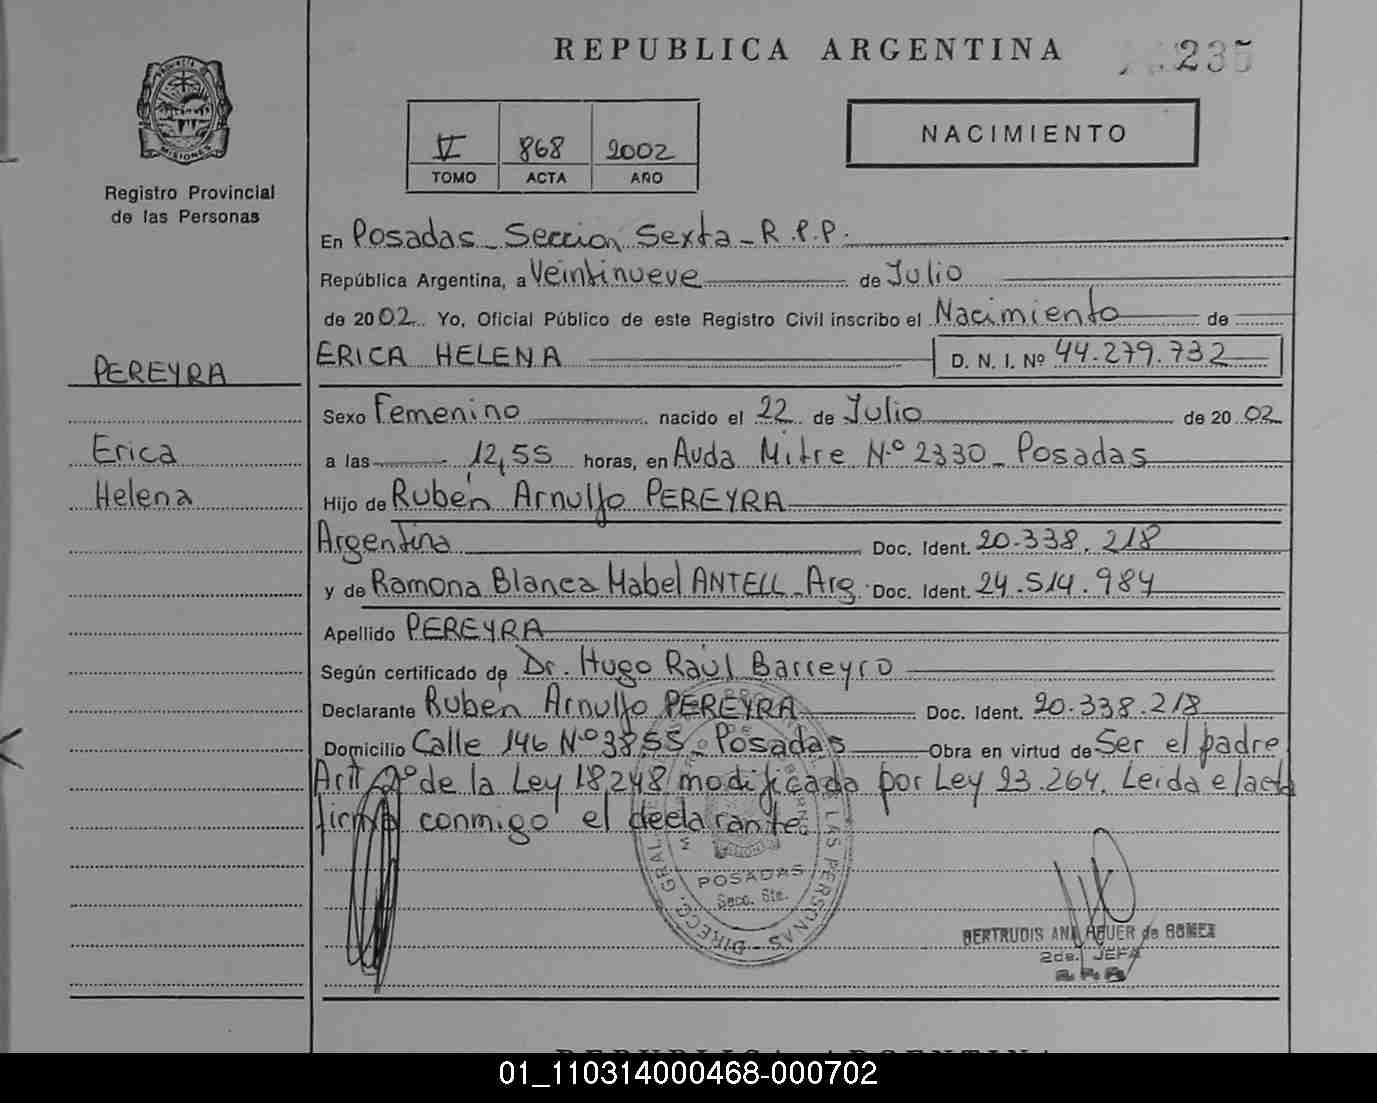 REPUBLICA ARGENTINA
235
PROVINCIA DE
MISIONES
Registro Provincial
de las Personas
V 868 2002
TOMO ACTA AÑO
NACIMIENTO
En Posadas - Seccion Sexta - R.P.P.
República Argentina, a Veintinueve de Julio
de 2002 Yo, Oficial Público de este Registro Civil inscribo el Nacimiento de
PEREYRA
ERICA HELENA D. N. I. Nº 44.279.732
Sexo Femenino nacido el 22 de Julio de 2002
Erica
a las 12,55 horas, en Avda Mitre N.º 2330 - Posadas
Helena
Hijo de Rubén Arnulfo PEREYRA
Argentina Doc. Ident. 20.338.218
y de Ramona Blanca Mabel ANTELL - Arg. Doc. Ident. 24.514.984
Apellido PEREYRA
Según certificado de Dr. Hugo Raúl Barreyro
Declarante Rubén Arnulfo PEREYRA Doc. Ident. 20.338.218
Domicilio Calle 146 Nº 3855 - Posadas Obra en virtud de Ser el padre
Art 2º de la Ley 18248 modificada por Ley 23.264. Leida el acta
firma conmigo el declarante
DIRECC. GRAL. LAS PERSONAS
POSADAS
Secc. 6ta.
BERTRUDIS ANA de GOMEZ
2da. JEFA
R.P.P.
REPUBLICA ARGENTINA
01_110314000468-000702